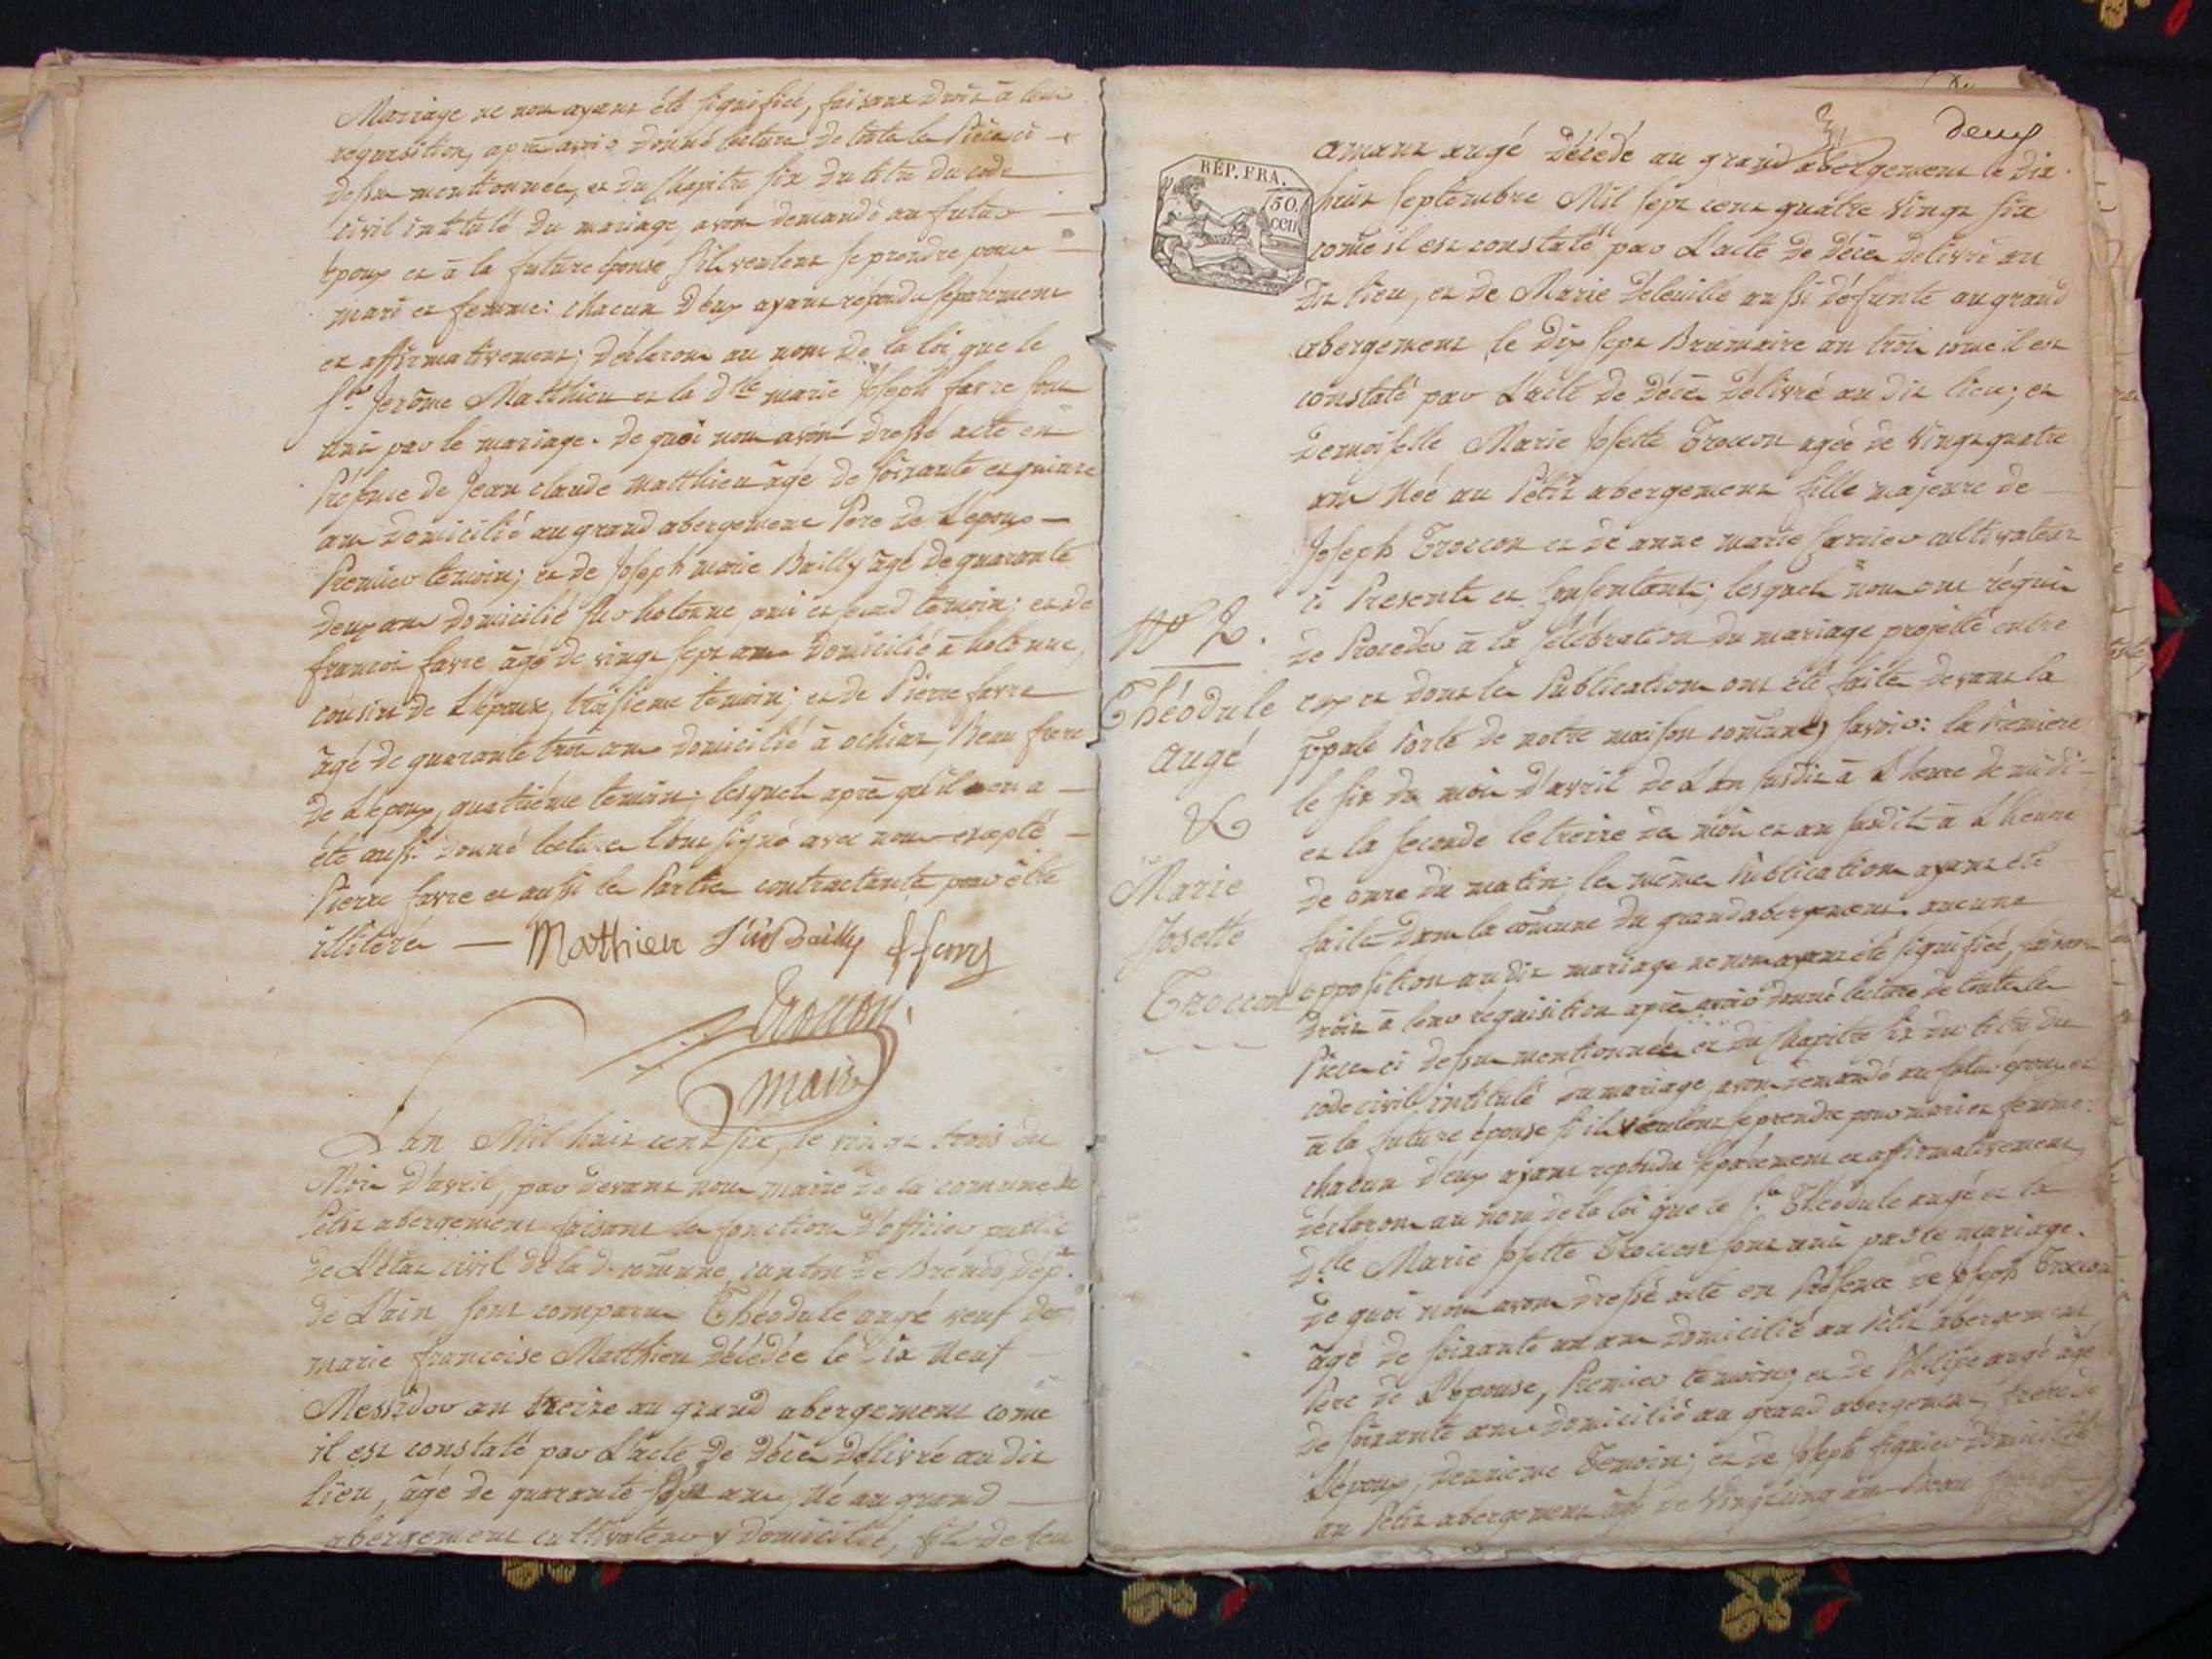 Mariage ne nous ayant été signifiée, faisant droit à leur
requisition, après avoir donné lecture de toutes les Pièces ci
dessus mentionnées, et du Chapitre six du titre du code
civil intitulé du mariage, avons demandé au futur
époux et à la future épouse s'ils veulent se prendre pour
mari et femme: chacun d'eux ayant répondu séparément
et affirmativement; déclarons au nom de la loi, que le
Sr. Jerôme Matthieu et la dlle marie Joseph favre sont
unis par le mariage. de quoi nous avons dressé acte en
Présence de Jean claude matthieu âgé de soixante et quinze
ans domicilié au grand abergement Pere de L'époux
Premier temoin; et de Joseph marie Bailly âgé de quarante
deux ans domicilié sur hotonne, ami et second temoin; et de
francois favre âgé de vingt sept ans domicilié à hotonne,
cousin de L'épouse, troisieme temoin; et de Pierre favre
âgé de quarante trois ans domicilié à ochiaz, Beau frere
de L'époux, quatriéme temoin; lesquels après qu'il leur a
été aussi donné lecture l'ont signé avec nous excepté
Pierre favre et aussi les Parties contractantes pour être
illiteré — Matthieu Bailly f favre
Troccon
maire
L'an Mil huit cent six, le vingt trois du
Mois d'avril, par devant nous maire de la comune du
Petit abergement faisant les fonctions d'officier public
de L'état civil de la de. comune, canton de Brenod, dépt.
de L'ain, sont comparus Théodule augé veuf de
marie francoise Matthieu décédée le dix Neuf
Messidor an treize au grand abergement come
il est constaté par L'acte de décès délivré au dit
lieu, âgé de quarante sept ans, Né au grand
abergement cultivateur y domicilié, fils de feu
deux
RÉP. FRA.
50.
CEN
amant augé décédé au grand abergement le dix
huit septembre Mil sept cent quatre vingt six
come il est constaté par L'acte de décès delivré au
dit lieu, et de Marie Déleuille aussi défunte au grand
abergement le dix sept Brumaire an trois come il est
constaté par L'acte de décès délivré au dit lieu; et
demoiselle Marie Josette Troccon agée de vingt quatre
ans Née au Petit abergement fille majeure de
Joseph Troccon et de anne marie Carrier cultivateurs
ci Presents et Consentants; lesquels nous ont réquis
de Proceder à la Célébration du mariage projetté entre
eux et dont les Publications ont été faites devant la
ppale Porte de notre maison comune, savoir: la Premiere
le six du mois d'avril de L'an susdit à L'heure de midi
et la seconde le treize des mois et an susdits à L'heure
de onze du matin; les mêmes Publications ayant été
faites dans la comune du grand abergement aucune
opposition au dit mariage ne nous ayant été signifiée, faisant
droit à leur réquisition après avoir donné lecture de toutes les
Pieces ci dessus mentionnées et du Chapitre six du titre du
code civil intitulé du mariage, avons demandé au futur époux et
à la future épouse s'ils veulent se prendre pour mari et femme:
chacun d'eux ayant repondu séparement et affirmativement,
déclarons au nom de la loi que le Sr. Théodule augé et la
dlle Marie Josette Troccon sont unis par le mariage.
de quoi nous avons dressé acte en Présence de Joseph Troccon
âgé de soixante un ans domicilié au Petit abergement,
Pere de L'épouse, Premier temoin; et de Philipe augé âgé
de soixante ans domicilié au grand abergement, frère de
L'époux, deuxieme Temoin; et de Joseph figuier domicilié
au Petit abergement âgé de vingt cinq ans Beau frere
No 2.
Théodule
augé
&
Marie
Josette
Troccon